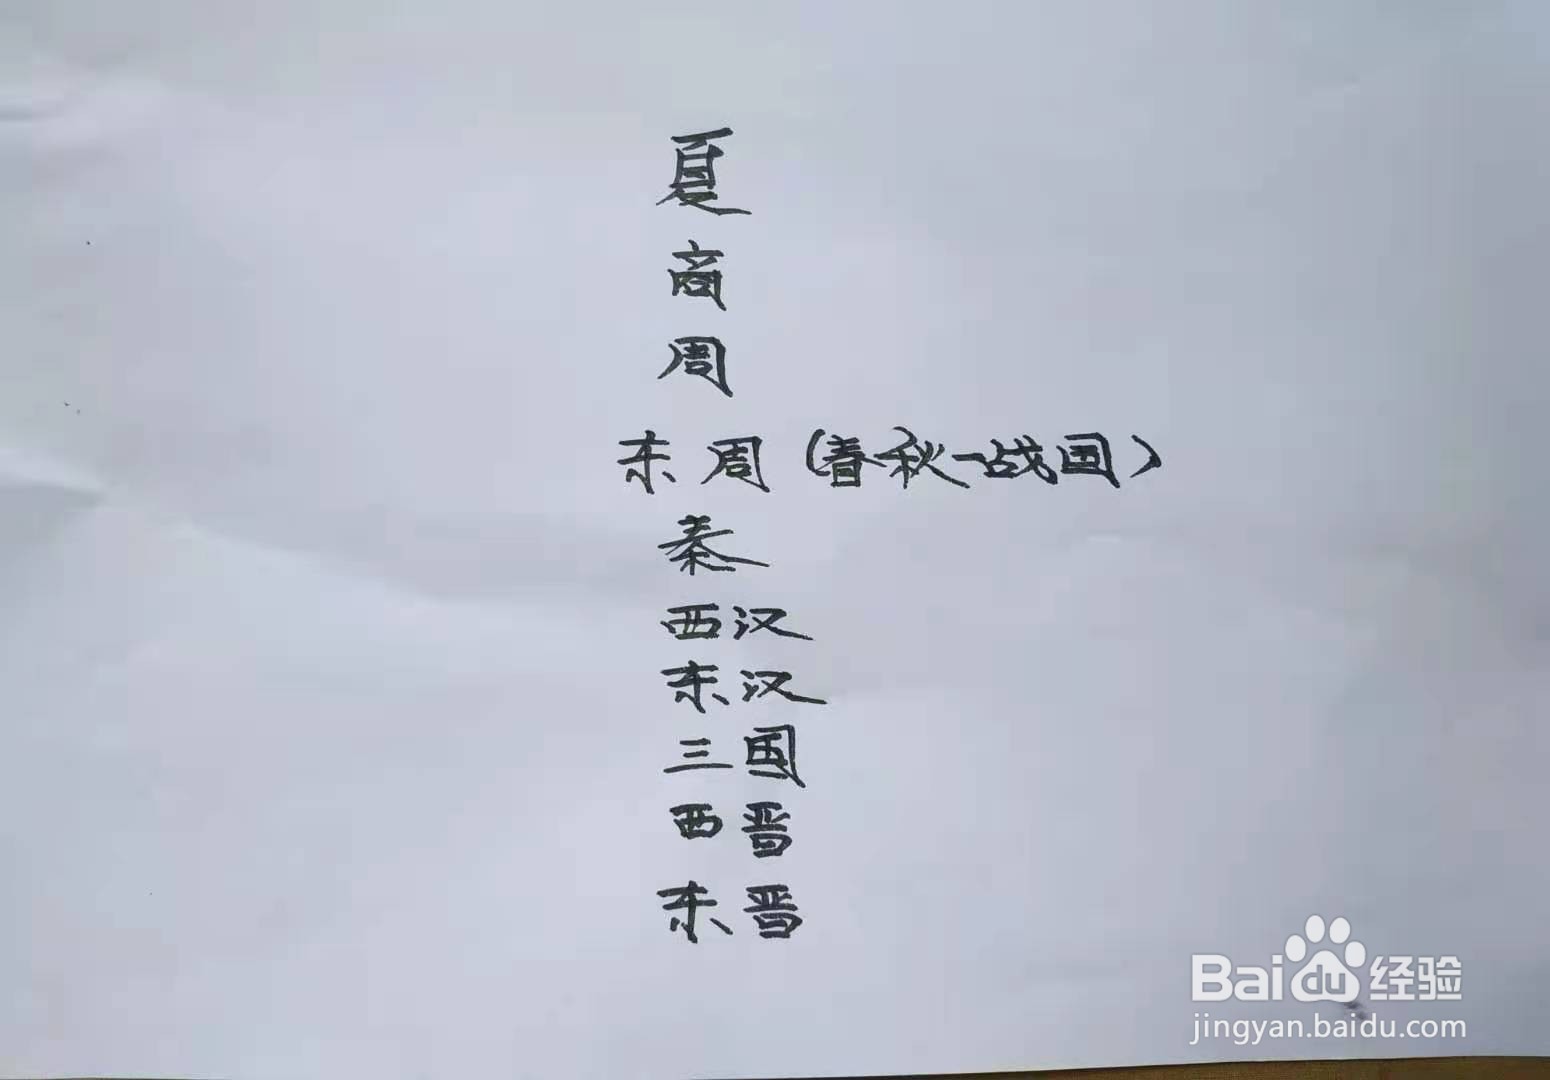 夏
商
周
东周（春秋-战国）
秦
西汉
东汉
三国
西晋
东晋
Baidu经验
jingyan.baidu.com